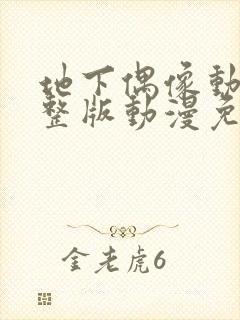 地下偶像動
整版動漫免
金老虎6